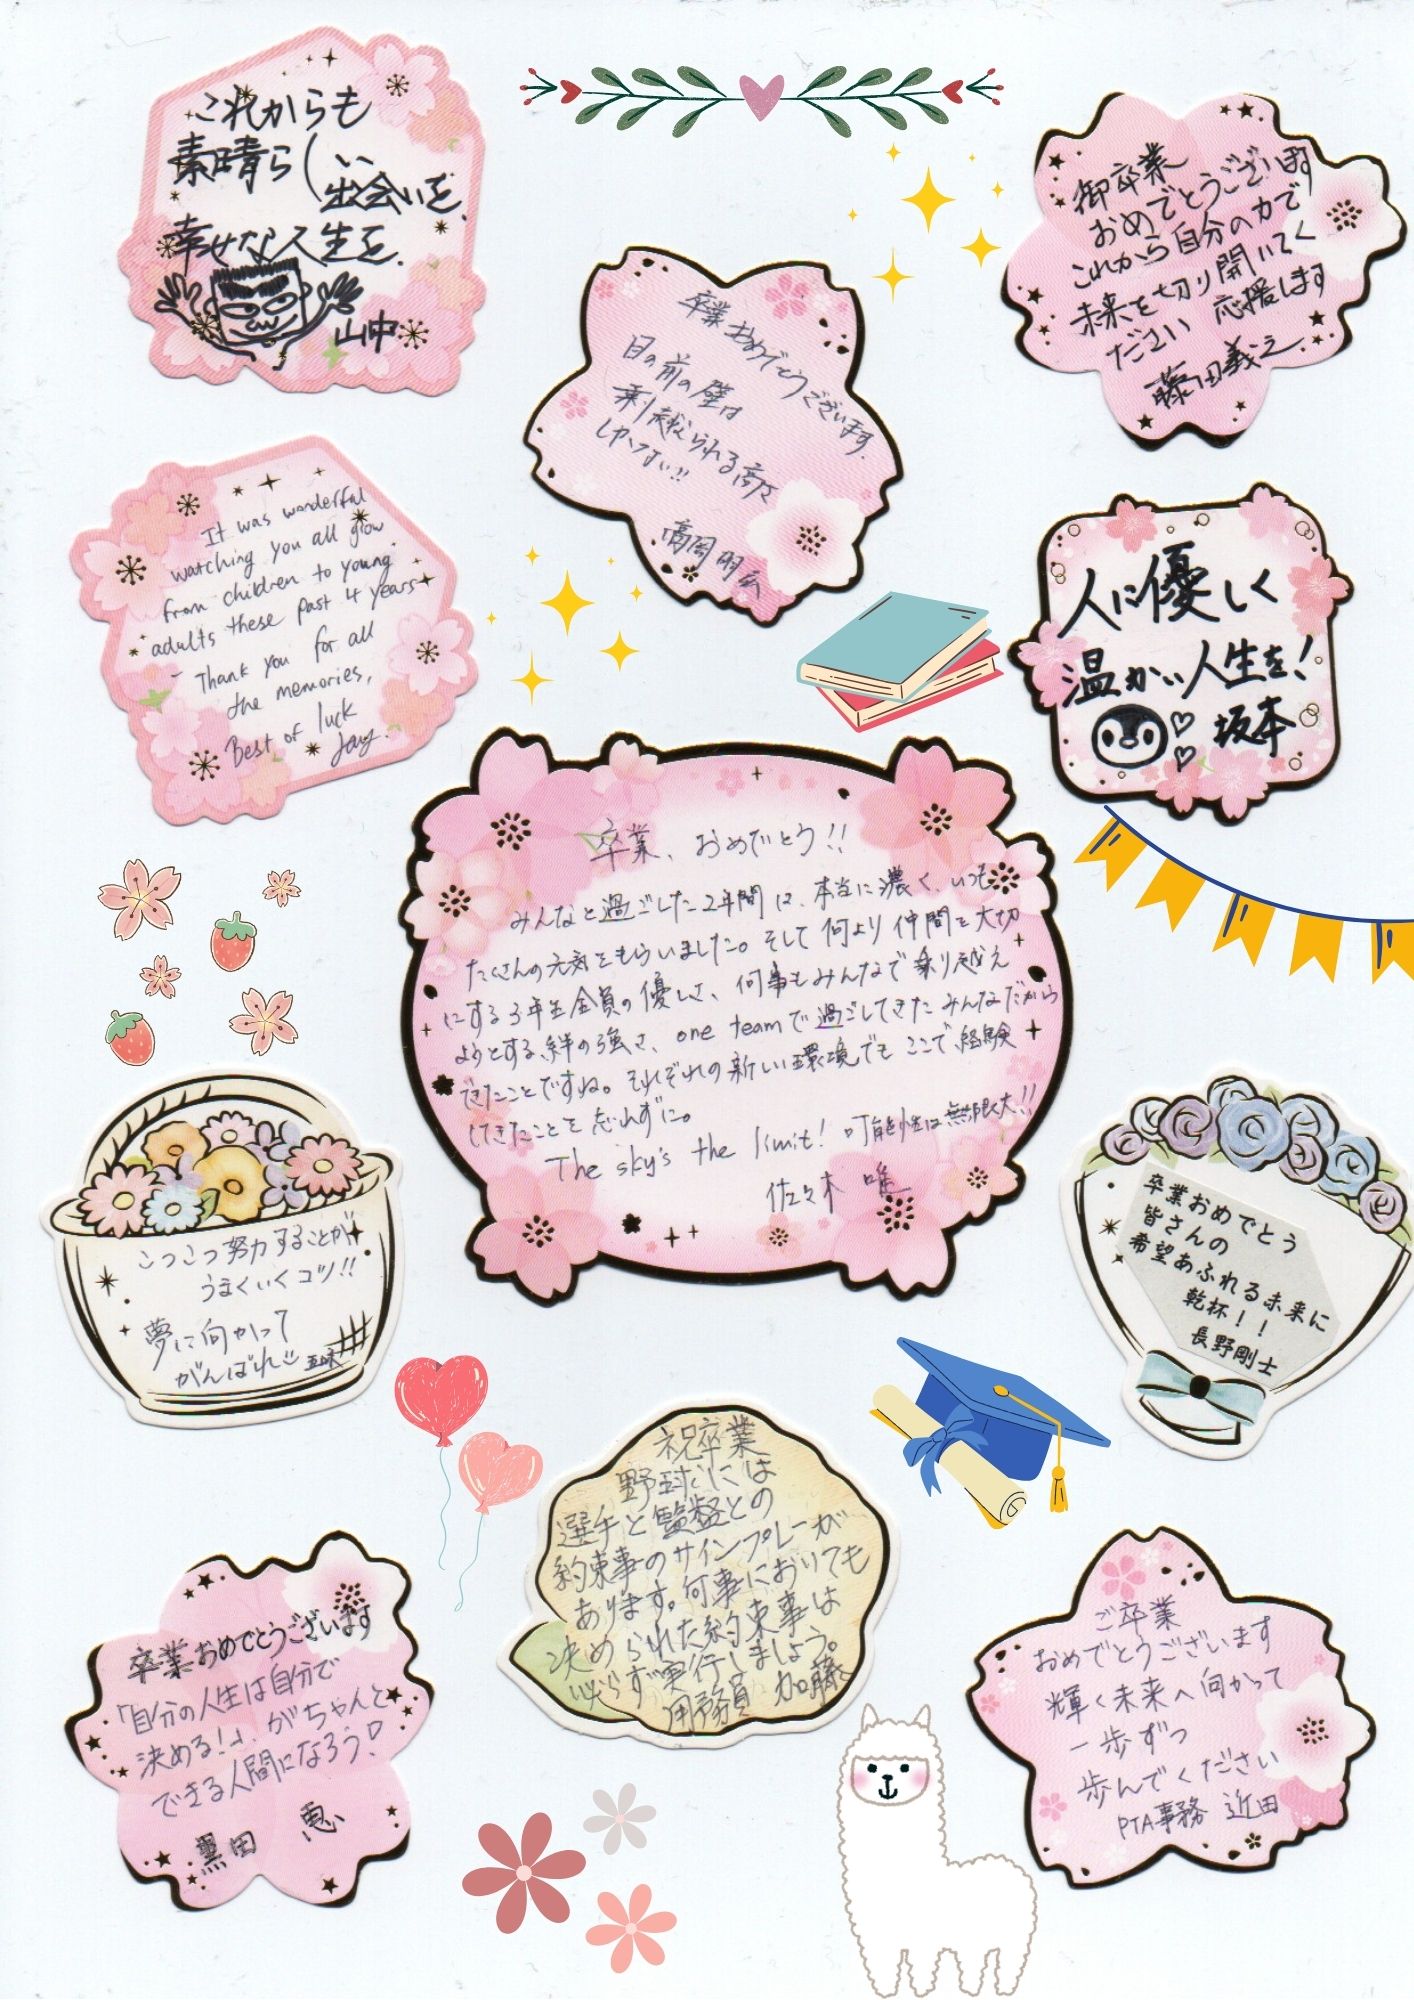 これからも
素晴らしい
出会いを.
幸せな人生を.
山中
御卒業
おめでとうございます
これから自分の力で
未来を切り開いて
ください 応援します
藤田義之
卒業おめでとうございます.
目の前の壁は
乗り越えられる高さ
しかない!!
高岡明
It was wonderful
watching you all grow
from children to young
adults these past 4 years
- Thank you for all
the memories,
Best of luck
Jay.
人に優しく
温かい人生を!
坂本
卒業、おめでとう!!
みんなと過ごした2年間は、本当に濃く、いつも
たくさんの元気をもらいました。そして何より仲間を大切
にする3年生全員の優しさ、何事もみんなで乗り越え
ようとする絆の強さ、one teamで過ごしてきたみんなだから
できたことですね。それぞれの新しい環境でもここで経験
してきたことを忘れずに。
The sky's the limit! 可能性は無限大!!
佐々木 唯
こつこつ努力することが
うまくいくコツ!!
夢に向かって
がんばれ
卒業おめでとう
皆さんの
希望あふれる未来に
乾杯!!
長野剛士
祝卒業
野球には
選手と監督との
約束事のサインプレーが
あります。何事においても
決められた約束事は
必らず実行しましょう。
用務員 加藤
卒業おめでとうございます
「自分の人生は自分で
決める!」、がちゃんと
できる人間になろう!
黒田 恵
ご卒業
おめでとうございます
輝く未来へ向かって
一歩ずつ
歩んでください
PTA事務 近田